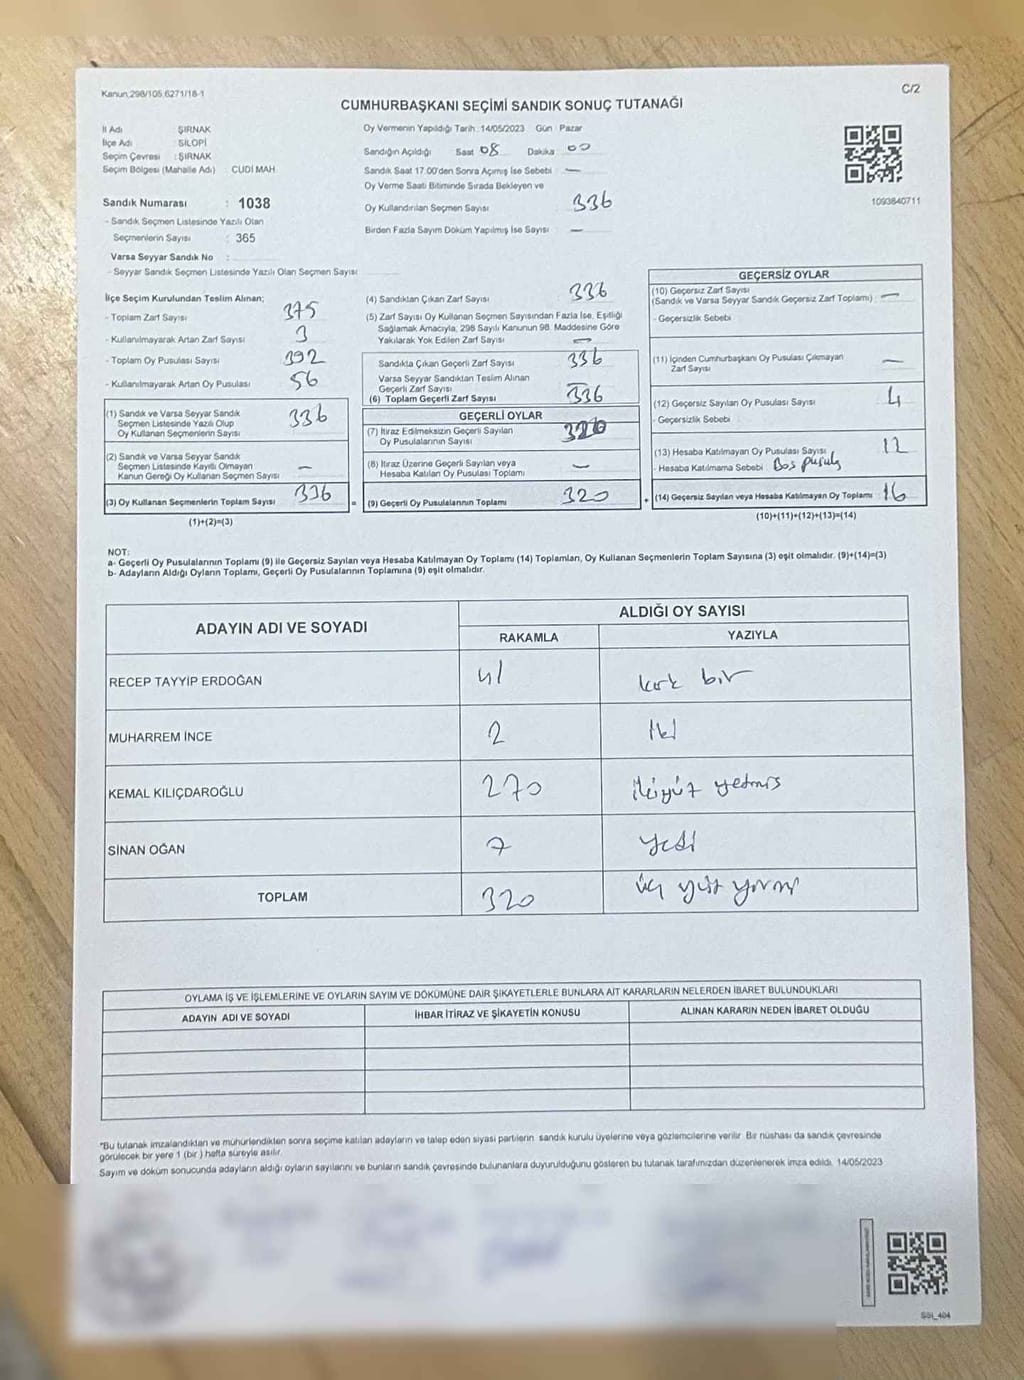 Kanun,298/105,6271/18-1
C/2
CUMHURBAŞKANI SEÇİMİ SANDIK SONUÇ TUTANAĞI
İl Adı ŞIRNAK
İlçe Adı SİLOPİ
Seçim Çevresi : ŞIRNAK
Seçim Bölgesi (Mahalle Adı) : CUDİ MAH
Sandık Numarası : 1038
- Sandık Seçmen Listesinde Yazılı Olan
Seçmenlerin Sayısı : 365
Varsa Seyyar Sandık No :
- Seyyar Sandık Seçmen Listesinde Yazılı Olan Seçmen Sayısı
Oy Vermenin Yapıldığı Tarih : 14/05/2023 Gün : Pazar
Sandığın Açıldığı Saat 08 Dakika 00
Sandık Saat 17.00'den Sonra Açımış İse Sebebi : —
Oy Verme Saati Bitiminde Sırada Bekleyen ve
Oy Kullandırılan Seçmen Sayısı 336
Birden Fazla Sayım Döküm Yapılmış İse Sayısı —
1093840711
İlçe Seçim Kurulundan Teslim Alınan;
- Toplam Zarf Sayısı 375
- Kullanılmayarak Artan Zarf Sayısı 3
- Toplam Oy Pusulası Sayısı 392
- Kullanılmayarak Artan Oy Pusulası 56
(1) Sandık ve Varsa Seyyar Sandık
Seçmen Listesinde Yazılı Olup
Oy Kullanan Seçmenlerin Sayısı 336
(2) Sandık ve Varsa Seyyar Sandık
Seçmen Listesinde Kayıtlı Olmayan
Kanun Gereği Oy Kullanan Seçmen Sayısı —
(3) Oy Kullanan Seçmenlerin Toplam Sayısı 336
(1)+(2)=(3)
(4) Sandıktan Çıkan Zarf Sayısı 336
(5) Zarf Sayısı Oy Kullanan Seçmen Sayısından Fazla İse, Eşitliği
Sağlamak Amacıyla, 298 Sayılı Kanunun 98. Maddesine Göre
Yakılarak Yok Edilen Zarf Sayısı —
Sandıkla Çıkan Geçerli Zarf Sayısı 336
Varsa Seyyar Sandıktan Teslim Alınan
Geçerli Zarf Sayısı —
(6) Toplam Geçerli Zarf Sayısı 336
GEÇERLİ OYLAR
(7) İtiraz Edilmeksizin Geçerli Sayılan
Oy Pusulalarının Sayısı 320
(8) İtiraz Üzerine Geçerli Sayılan veya
Hesaba Katılan Oy Pusulası Toplamı —
= (9) Geçerli Oy Pusulalarının Toplamı 320
GEÇERSİZ OYLAR
(10) Geçersiz Zarf Sayısı
(Sandık ve Varsa Seyyar Sandık Geçersiz Zarf Toplamı) : —
- Geçersizlik Sebebi
(11) İçinden Cumhurbaşkanı Oy Pusulası Çıkmayan
Zarf Sayısı —
(12) Geçersiz Sayılan Oy Pusulası Sayısı 4
- Geçersizlik Sebebi
(13) Hesaba Katılmayan Oy Pusulası Sayısı 12
- Hesaba Katılmama Sebebi Boş pusula
+ (14) Geçersiz Sayılan veya Hesaba Katılmayan Oy Toplamı 16
(10)+(11)+(12)+(13)=(14)
NOT:
a- Geçerli Oy Pusulalarının Toplamı (9) ile Geçersiz Sayılan veya Hesaba Katılmayan Oy Toplamı (14) Toplamları, Oy Kullanan Seçmenlerin Toplam Sayısına (3) eşit olmalıdır. (9)+(14)=(3)
b- Adayların Aldığı Oyların Toplamı, Geçerli Oy Pusulalarının Toplamına (9) eşit olmalıdır.
ADAYIN ADI VE SOYADI
ALDIĞI OY SAYISI
RAKAMLA YAZIYLA
RECEP TAYYİP ERDOĞAN 41 kırk bir
MUHARREM İNCE 2 iki
KEMAL KILIÇDAROĞLU 270 ikiyüz yetmiş
SİNAN OĞAN 7 yedi
TOPLAM 320 üç yüz yirmi
OYLAMA İŞ VE İŞLEMLERİNE VE OYLARIN SAYIM VE DÖKÜMÜNE DAİR ŞİKAYETLERLE BUNLARA AİT KARARLARIN NELERDEN İBARET BULUNDUKLARI
ADAYIN ADI VE SOYADI İHBAR İTİRAZ VE ŞİKAYETİN KONUSU ALINAN KARARIN NEDEN İBARET OLDUĞU
*Bu tutanak imzalandıktan ve mühürlendikten sonra seçime katılan adayların ve talep eden siyasi partilerin sandık kurulu üyelerine veya gözlemcilerine verilir. Bir nüshası da sandık çevresinde
görülecek bir yere 1 (bir ) hafta süreyle asılır.
Sayım ve döküm sonucunda adayların aldığı oyların sayılarını ve bunların sandık çevresinde bulunanlara duyurulduğunu gösteren bu tutanak tarafımızdan düzenlenerek imza edildi. 14/05/2023
SSL_404